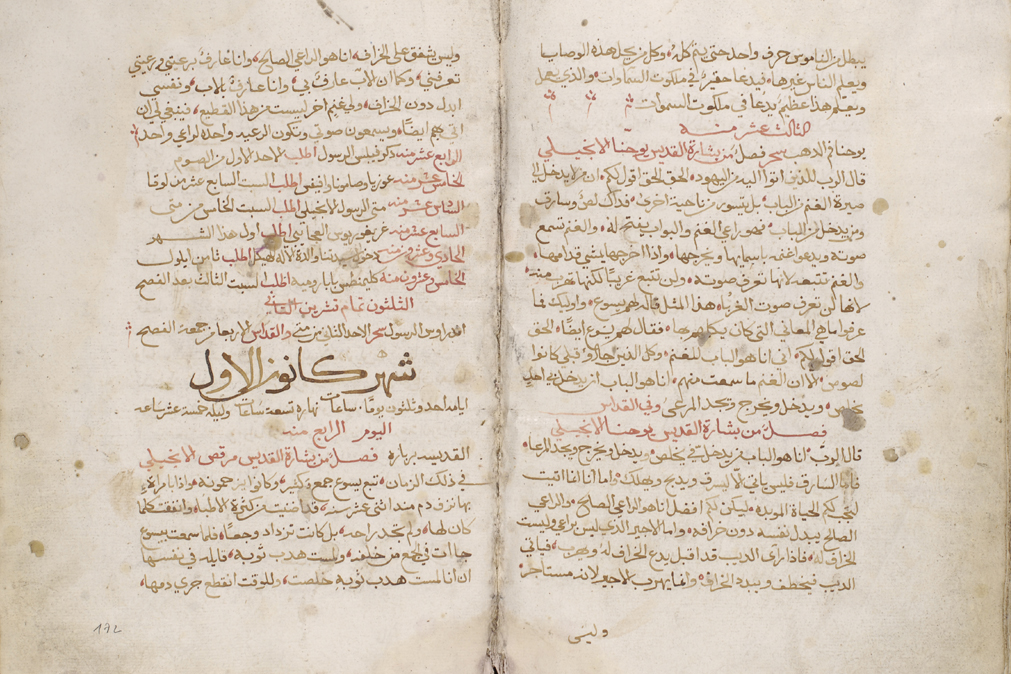 يبطل من الناموس حرف واحد حتى يتم كله، وكل من يحل هذه الوصايا
ويعلم الناس غيرها، فيدعا حقير في ملكوت السماوات، والذي يعمل
ويعلم هذا عظيم يدعا في ملكوت السموات
الثالث عشر منه
يوحنا فم الذهب سحر فصل من بشارة القديس يوحنا الانجيلي
قال الرب للذين اتوا اليه من اليهود، الحق الحق اقول لكم، ان من لا يدخل الى
صيرة الغنم من الباب، بل يتسور من ناحية اخرى، فذاك لص وسارق
ومن يدخل من الباب، فهو راعي الغنم، والبواب يفتح له، والغنم تسمع
صوته ويدعو اغنمه باسمايها ويخرجها، واذا اخرجها يمشي قدامها،
والغنم تتبعه لانها تعرف صوته، ولن تتبع غريبًا لكنها تهرب منه،
لانها لن تعرف صوت الغربا، هذا المثل قاله لهم يسوع، واوليك فما
عرفوا ما هي المعاني التي كان يكلمهم بها، فقال لهم يسوع ايضًا، الحق
الحق اقول لكم، اني انا هو الباب للغنم، وكل الذين جاؤوا قبلي كانوا
لصوص، الا ان الغنم ما سمعت منهم، انا هو الباب ان يدخل بي احد
يخلص، ويدخل ويخرج ويجد المرعى، وفي القداس
فصل من بشارة القديس يوحنا الانجيلي
قال الرب، انا هو الباب فمن يدخل في يخلص، ويدخل ويخرج ويجد المرعا،
فاما السارق فليس ياتي الا ليسرق ويذبح ويهلك، واما انا فاتيت
لتكون لكم الحياة الموبده، ليكن لكم افضل انا هو الراعي الصالح، والراعي
الصالح يبدل نفسه دون خرافه، واما الاجير الذي ليس براعي وليست
الخراف له، فاذا راى الذيب قد اقبل يدع الخراف له ويهرب، فياتي
الذيب فيخطف ويبدد الخراف، وانما يهرب الاجير لانه مستاجر،
وليس
وليس يشفق على الخراف، انا هو الراعي الصالح، وانا عارف برعيتي ورعيتي
تعرفني، وكما ان الاب عارف بي، وانا عارف بالاب، ونفسي
ابدل دون الخراف، ولي غنم اخر ليست من هذا القطيع، فينبغي لي ان
اتي بهم ايضًا، ويسمعون صوتي وتكون الرعيه واحده لراعي واحد
الرابع عشر منه ذكر فيلبس الرسول اطلب الاحد الاول من الصوم
الخامس عشر منه غوريا وصامونا وافيفي اطلب السبت السابع عشر من لوقا
السادس عشر منه متى الرسول الانجيلي اطلب السبت الخامس من متى
السابع عشر منه غريغوريوس العجايبي اطلب اول هذا الشهر
الحادي وعشرين منه دخول سيدتنا والدة الاله للهيكل اطلب ثامن ايلول
الخامس وعشرون منه كليمنطس بابا روميه اطلب السبت الثالث بعد الفصح
الثلثون تمام تشرين الثاني
اندراوس الرسول سحر الاحد الثاني من متى والقداس الاربعا من جمعة الفصح
شهر كانون الاول
ايامه احد وثلثون يومًا، ساعات نهاره تسعة ساعات وليله خمسة عشر ساعه
اليوم الرابع منه
القديسه بربارة فصل من بشارة القديس مرقص الانجيلي
في ذلك الزمان، تبع يسوع جمع كثير، وكانوا يزحمونه، واذا بامراة
بها نزف دم منذ اثنتي عشر سنه، قد اضنيت من كثرة الاطبا، وانفقت كلما
كان لها، ولم تجد راحه، بل كانت تزداد وجعًا، فلما سمعت بيسوع
جاات في الجمع من خلفه، ولمست هدب ثوبه، قايله في نفسها
ان انا لمست هدب ثوبه خلصت، وللوقت انقطع جري دمها،
172